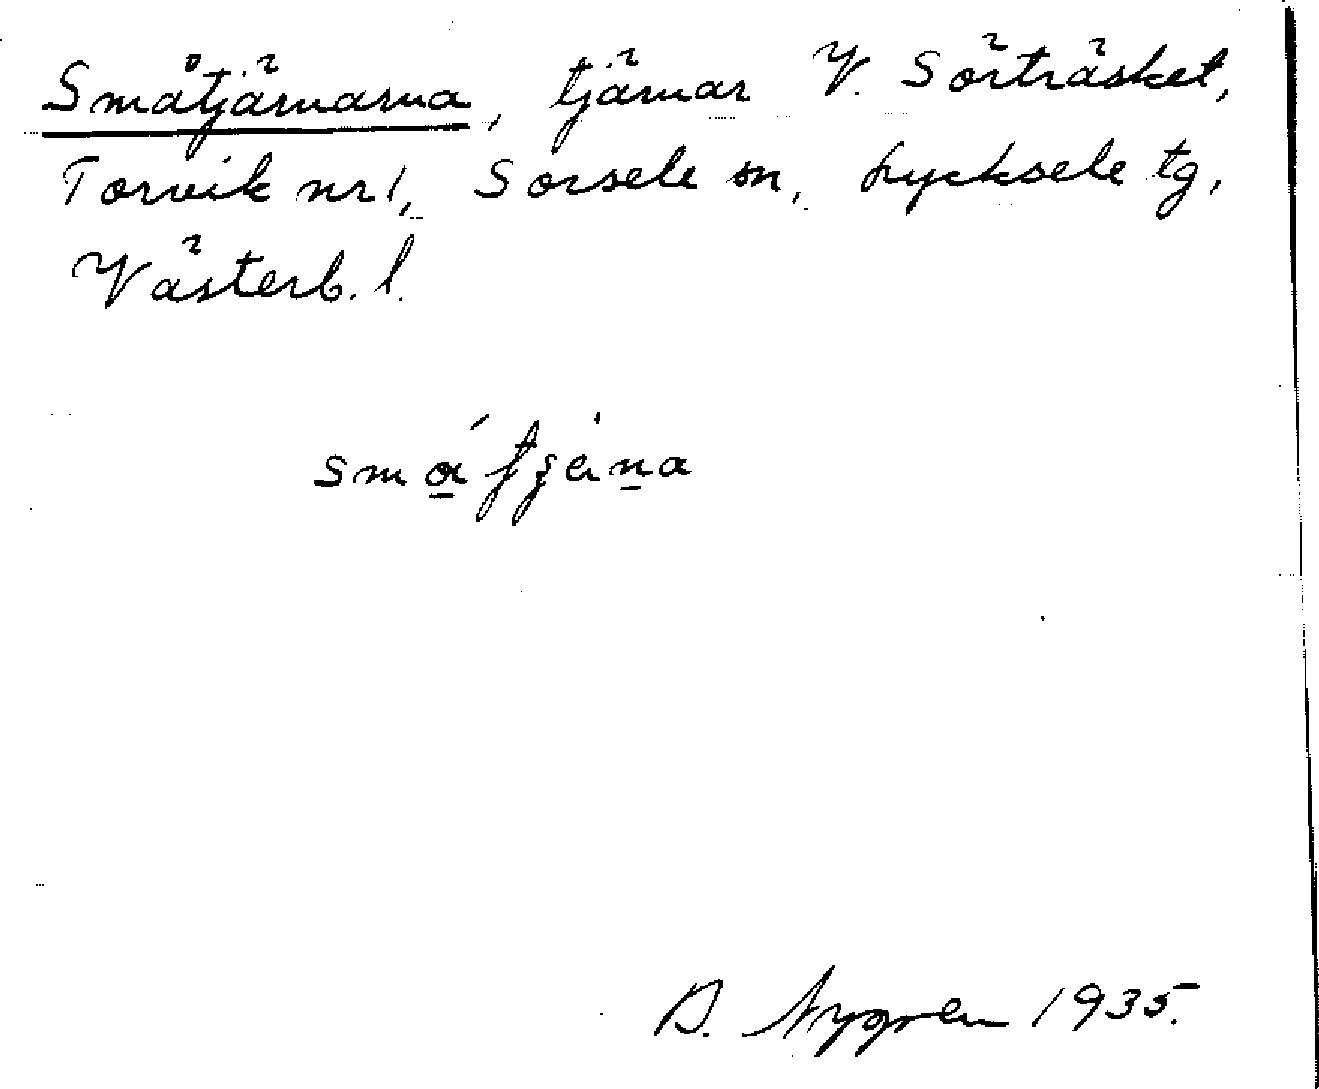 Småtjärnarna, tjärnar V. Sörträsket,
Torvik nr 1, Sorsele sn, Lycksele tg,
Västerb. l.
Nygren 1935.